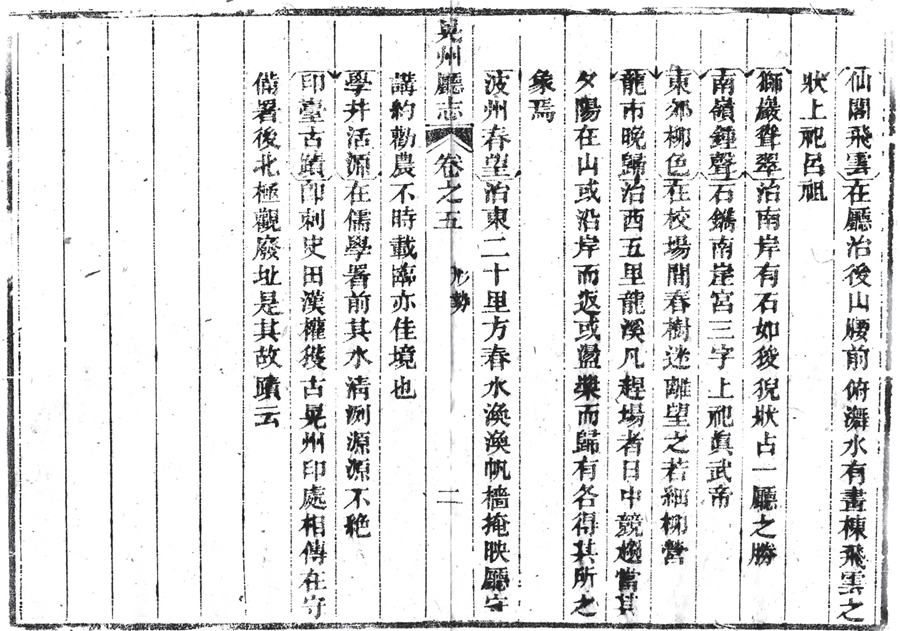 仙閣飛雲在廳治後山腰前俯㵲水有畫棟飛雲之
狀上祀呂祖
獅巖聳翠治南岸有石如狻猊狀占一廳之勝
南嶺鍾聲石鐫南崖宮三字上祀眞武帝
東郊柳色在校場間春樹迷離望之若細柳營
龍市晚歸治西五里龍溪凡趕場者日中競趨當其
夕陽在山或沿岸而返或盪槳而歸有各得其所之
象焉
波州春望治東二十里方春水渙渙帆檣掩映廳守
晃州廳志 卷之五 形勢 二
講約勸農不時載臨亦佳境也
學井活源在儒學署前其水清洌源源不絕
印臺古蹟卽刺史田漢權獲古晃州印處相傳在守
備署後北極觀廢址是其故蹟云